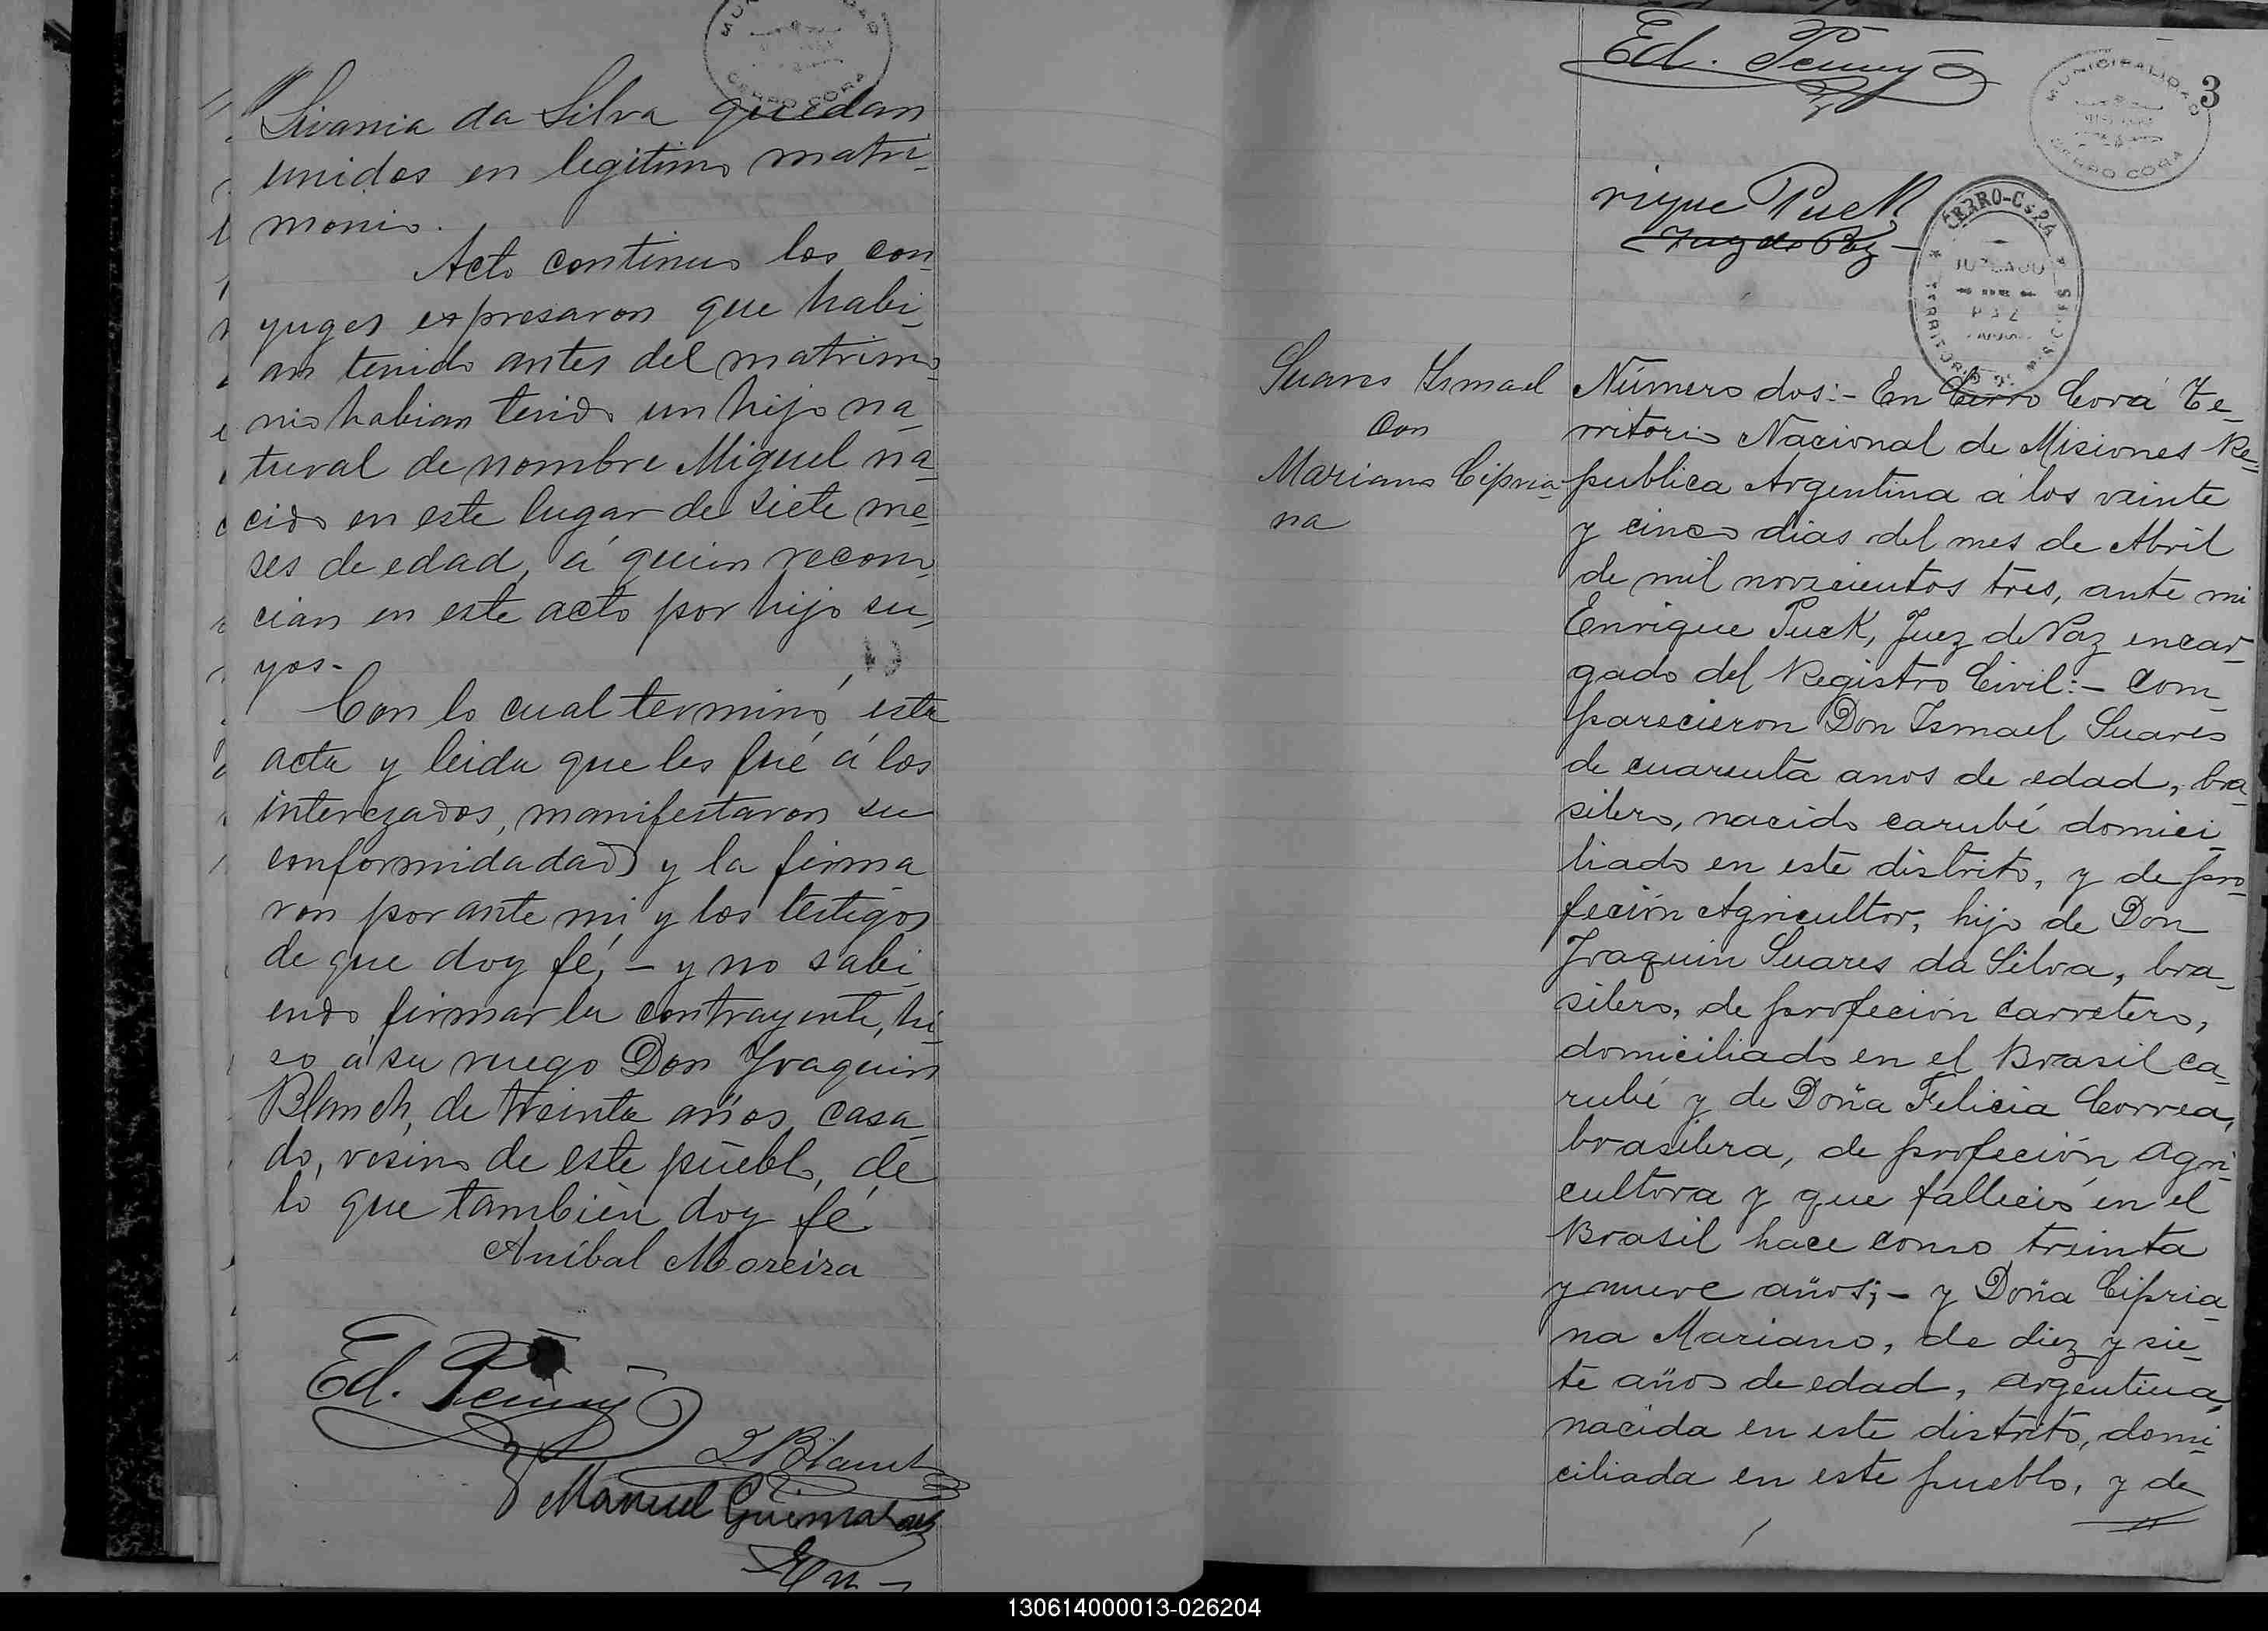 Livania da Silva quedan
unidos en legitimo matri-
monio.
Acto continuo los con-
yuges expresaron que habi-
an tenido antes del matrimo-
nio habian tenido un hijo na-
tural de nombre Miguel na-
cido en este lugar de siete me-
ses de edad, á quien recono-
cian en este acto por hijo su-
yos-
Con lo cual terminó esta
acta y leida que les fué á los
interezados, manifestaron su
conformidadad y la firma
ron por ante mi y los testigos
de que doy fé, - y no sabi-
endo firmar la contrayente, hi-
so á su ruego Don Joaquin
Blanch, de treinta años, casa-
do, vesino de este pueblo, de
lo que también doy fé.
Anibal Moreira
Ed. Penny
J Blanch
Manuel
En-
130614000013-026204
Ed. Penny
3
MUNICIPALIDAD
CERRO CORA
rique Puck
Juez de Paz
CERRO-CORA
JUZGADO
DE
PAZ
Suares Ismael
con
Mariano Cipria-
na
Número dos:- En Cerro Corá Te-
rritorio Nacional de Misiones Re-
publica Argentina á los veinte
y cinco dias del mes de Abril
de mil novecientos tres, ante mi
Enrique Puck, Juez de Paz encar-
gado del Registro Civil:- com-
parecieron Don Ismael Suares
de cuarenta anos de edad, bra-
silero, nacido carubé domici-
liado en este distrito, y de pro-
feción Agricultor, hijo de Don
Joaquin Suares da Silva, bra-
silero, de profeción carretero,
domiciliado en el Brasil ca-
rubé y de Doña Felicia Correa,
brasilera, de profeción agri-
cultora y que falleció en el
Brasil hace como treinta
y nueve años;- y Doña Cipria-
na Mariano, de diez y sie-
te años de edad, argentina,
nacida en este distrito, domi-
ciliada en este pueblo, y de